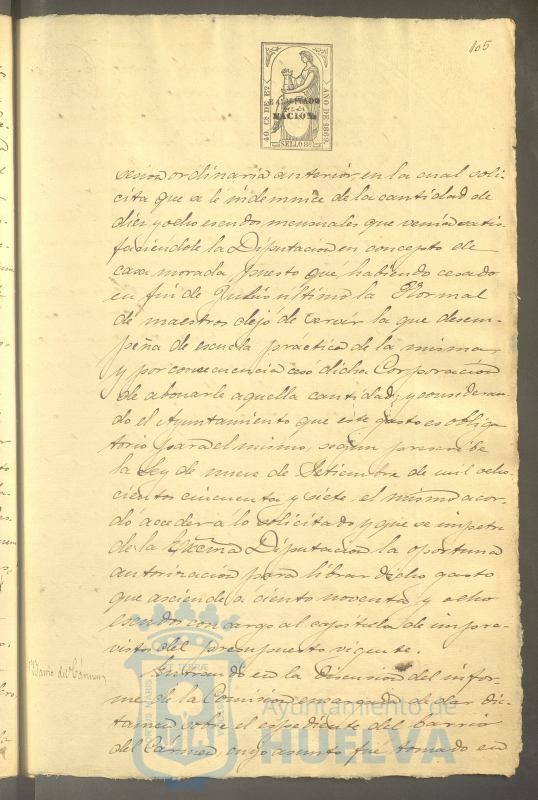 105
40. Cs. DE Eo.
AÑO DE 1869.
HABILITADO
POR LA
NACION.
SELLO 9o.
sesion ordinaria anterior, en la cual soli-
cita que se le indemnice de la cantidad de
diez y ocho escudos mensuales que venia satis-
faciendole la Diputacion en concepto de
casa morada puesto que habiendo cesado
en fin de Junio último la Normal
de maestros dejó de servir la que desem-
peña de escuela practica de la misma
y por consecuencia cesó dicha Corporacion
de abonarle aquella cantidad; y consideran-
do el Ayuntamiento que este gasto es obliga-
torio para el mismo, segun prescribe
la Ley de nueve de Setiembre de mil ocho-
cientos cincuenta y siete, el mismo acor-
dó acceder á lo solicitado y que se impetre
de la Excma Diputacion la oportuna
autorizacion para librar dicho gasto
que asciende a ciento noventa y ocho
escudos con cargo al capitulo de impre-
vistos del presupuesto vigente.
Barrio del Cármen
Entrando en la discusion del infor-
me de la Comision encargada de dar dic-
tamen sobre el espediente del barrio
del Cármen cuyo asunto fué tomado en
PORTUS MARIS ET TERRAE CUSTODIA
Ayuntamiento de
HUELVA